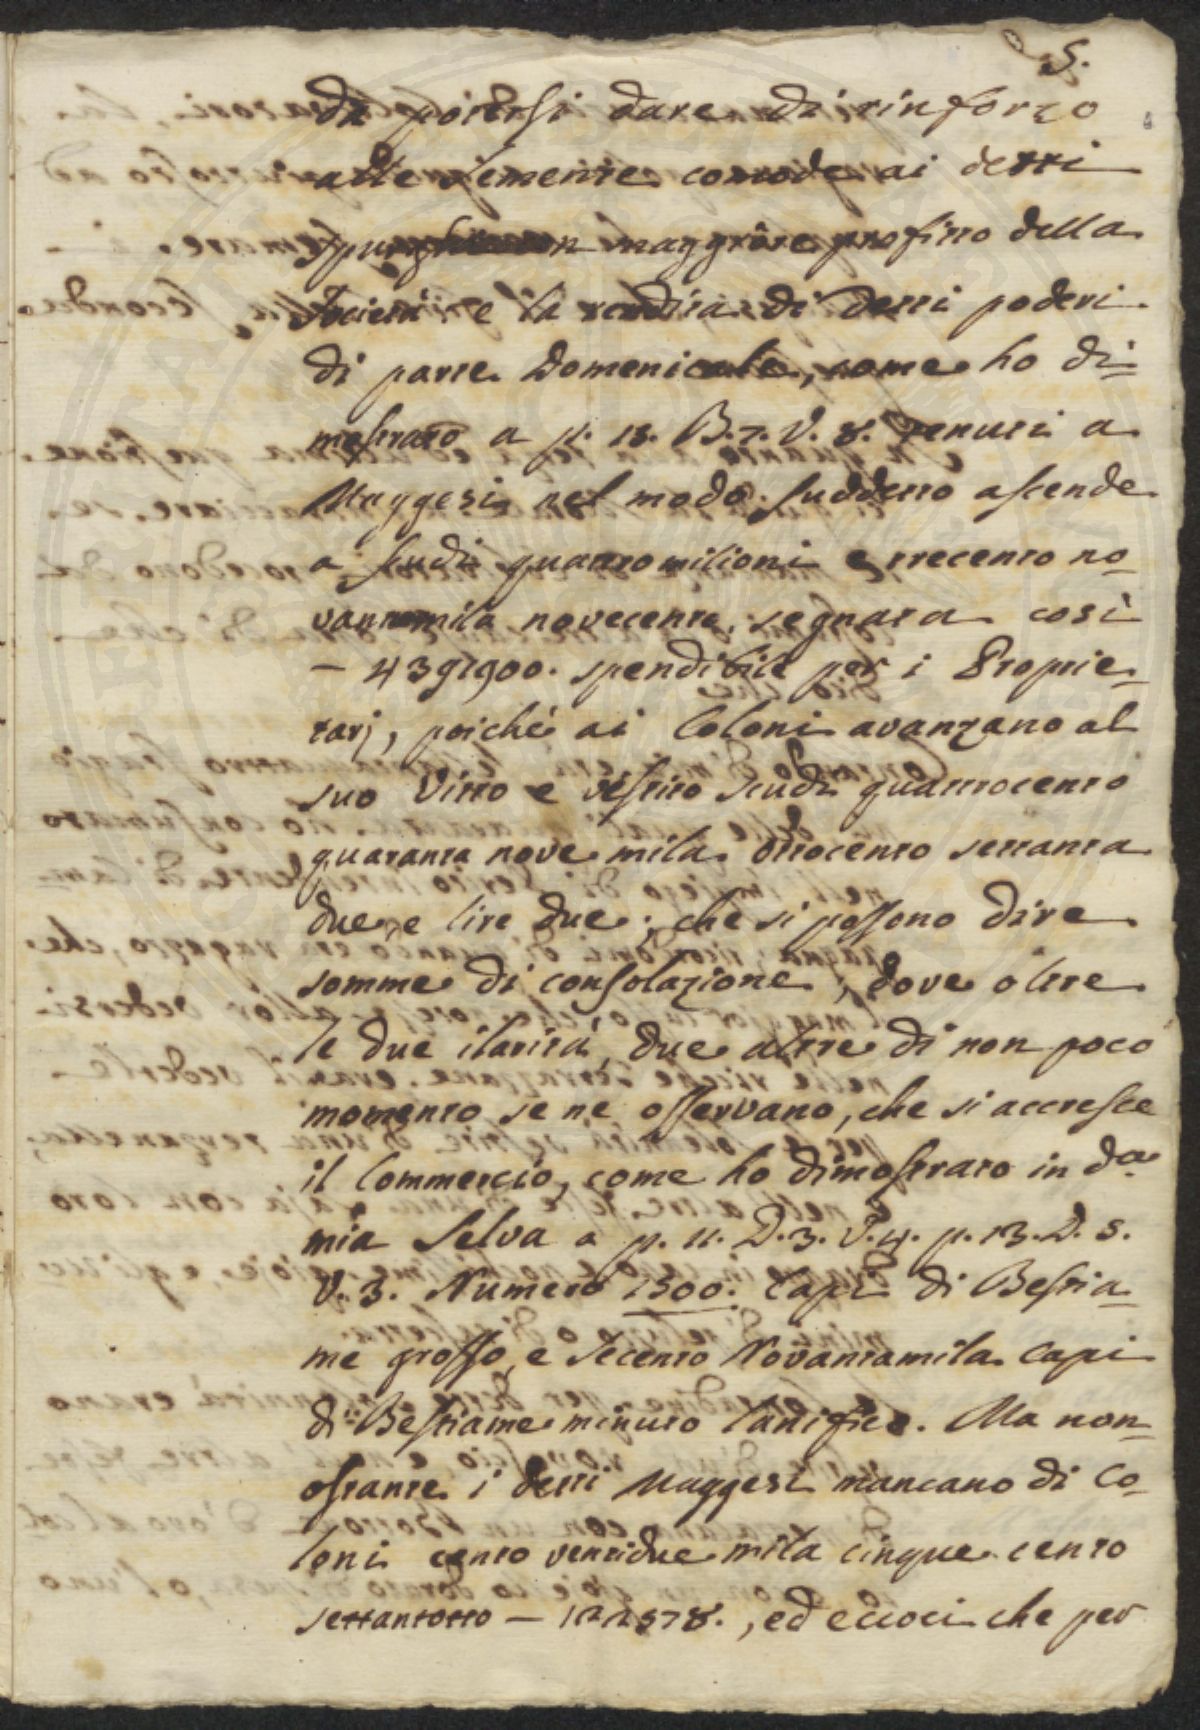 5.
da potersi dare di rinforzo
alle semente comode ai detti
con maggiore profitto della
Società e la rendita di detti poderi
di parte Domenicale, come ho di-
mostrato a p. 18. B. 7. V. 8. tenuti a
Maggesi nel modo suddetto ascende
a scudi quattromilioni e trecento no-
vantamila novecento, segnata così
— 4391900. spendibile per i Proprie-
tarj, poiché ai Coloni avanzano al
suo Vitto e vestito scudi quattrocento
quaranta nove mila ottocento settanta
due, e lire due; che si possono dire
somme di consolazione, dove oltre
le due ilarità, due altre di non poco
momento se ne osservano, che si accresce
il Commercio, come ho dimostrato in d.a
mia Selva a p. 11. D. 3. V. 4. p. 13. D. 5.
V. 3. Numero 1500. Capi di Bestia-
me grosso, e secento Novantamila Capi
di Bestiame minuto lanifico. Ma non-
ostante i detti Maggesi mancano di Co-
loni cento ventidue mila cinque cento
settantotto — 122578., ed eccoci che per